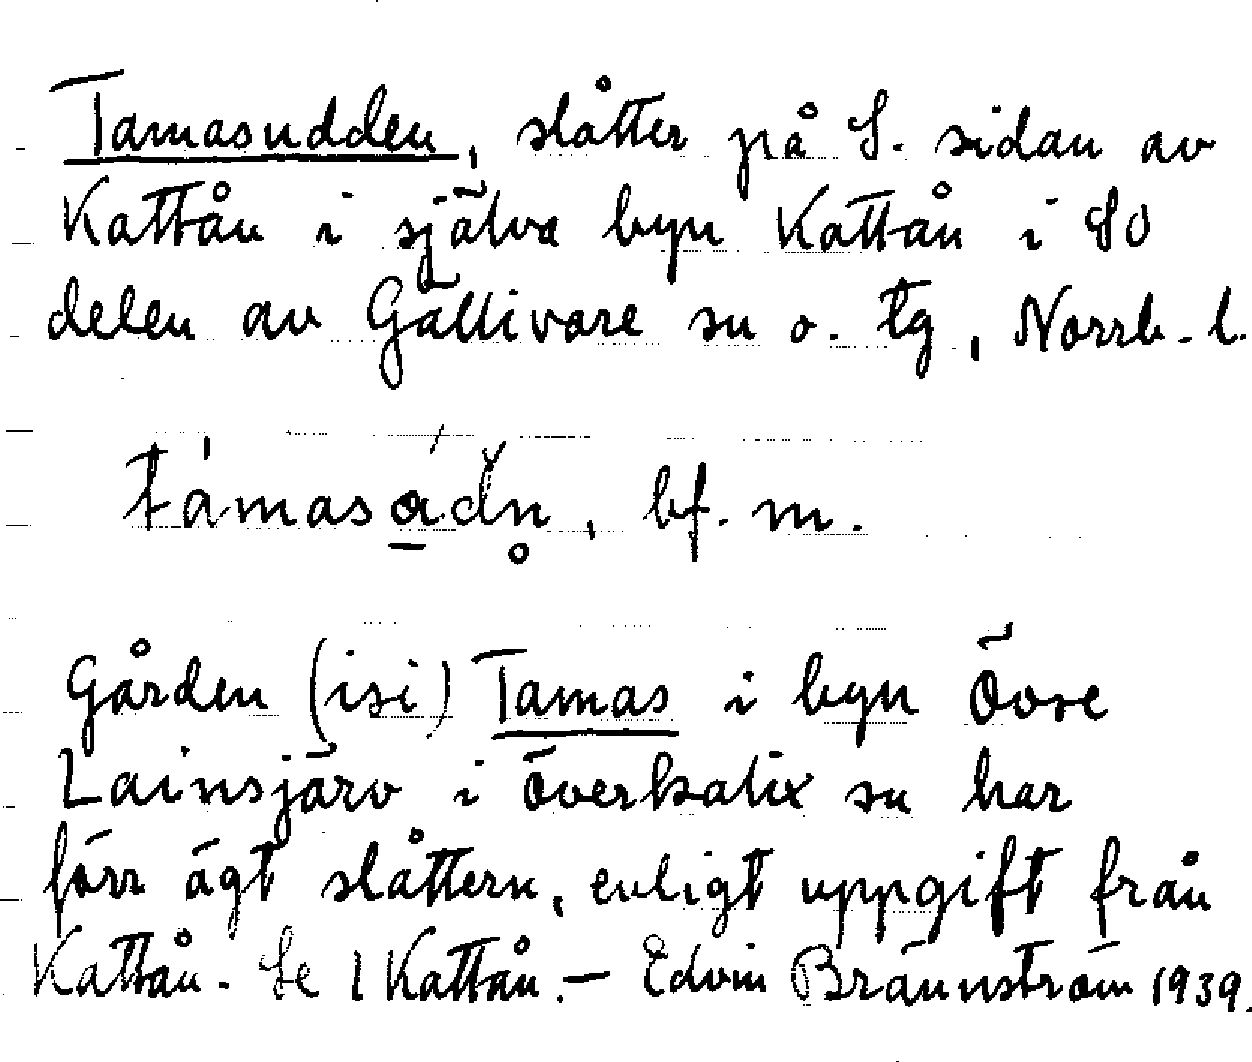 Tamasudden, slåtter på S. sidan av
Kattån i själva byn Kattån i SO
delen av Gällivare sn o. tg, Norrb. l.
támasa̲dn̥, bf. m.
Gården (isi) Tamas i byn Övre
Lainsjärv i Överkalix sn har
förr ägt slåttern, enligt uppgift från
Kattån. Se 1 Kattån. – Edvin Brännström 1939.